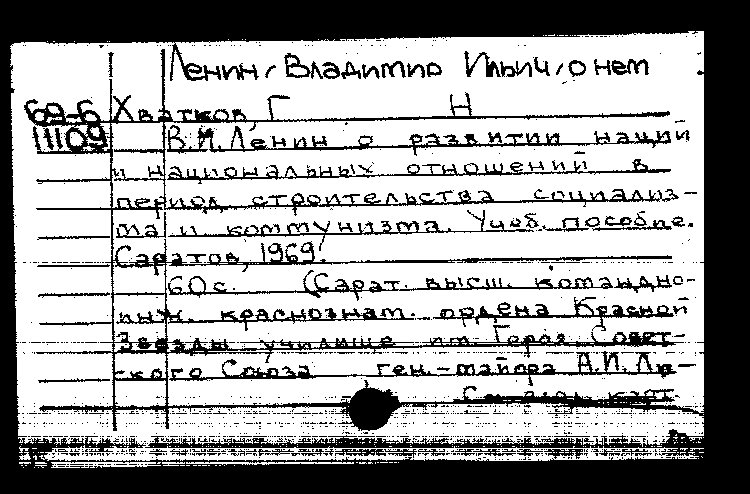 Ленин, Владимир Ильич, о нем
69-6 Хватков, Г Н
11109 В.И.Ленин о развитии наций
и национальных отношений в
период строительства социализ-
ма и коммунизма. Учеб. пособие.
Саратов, 1969.
60с. (Сарат. высш. командно-
инж. краснознам. ордена Красной
Звезды училище им. Героя Совет-
ского Союза ген.-майора А.И. Ли-
См. карт